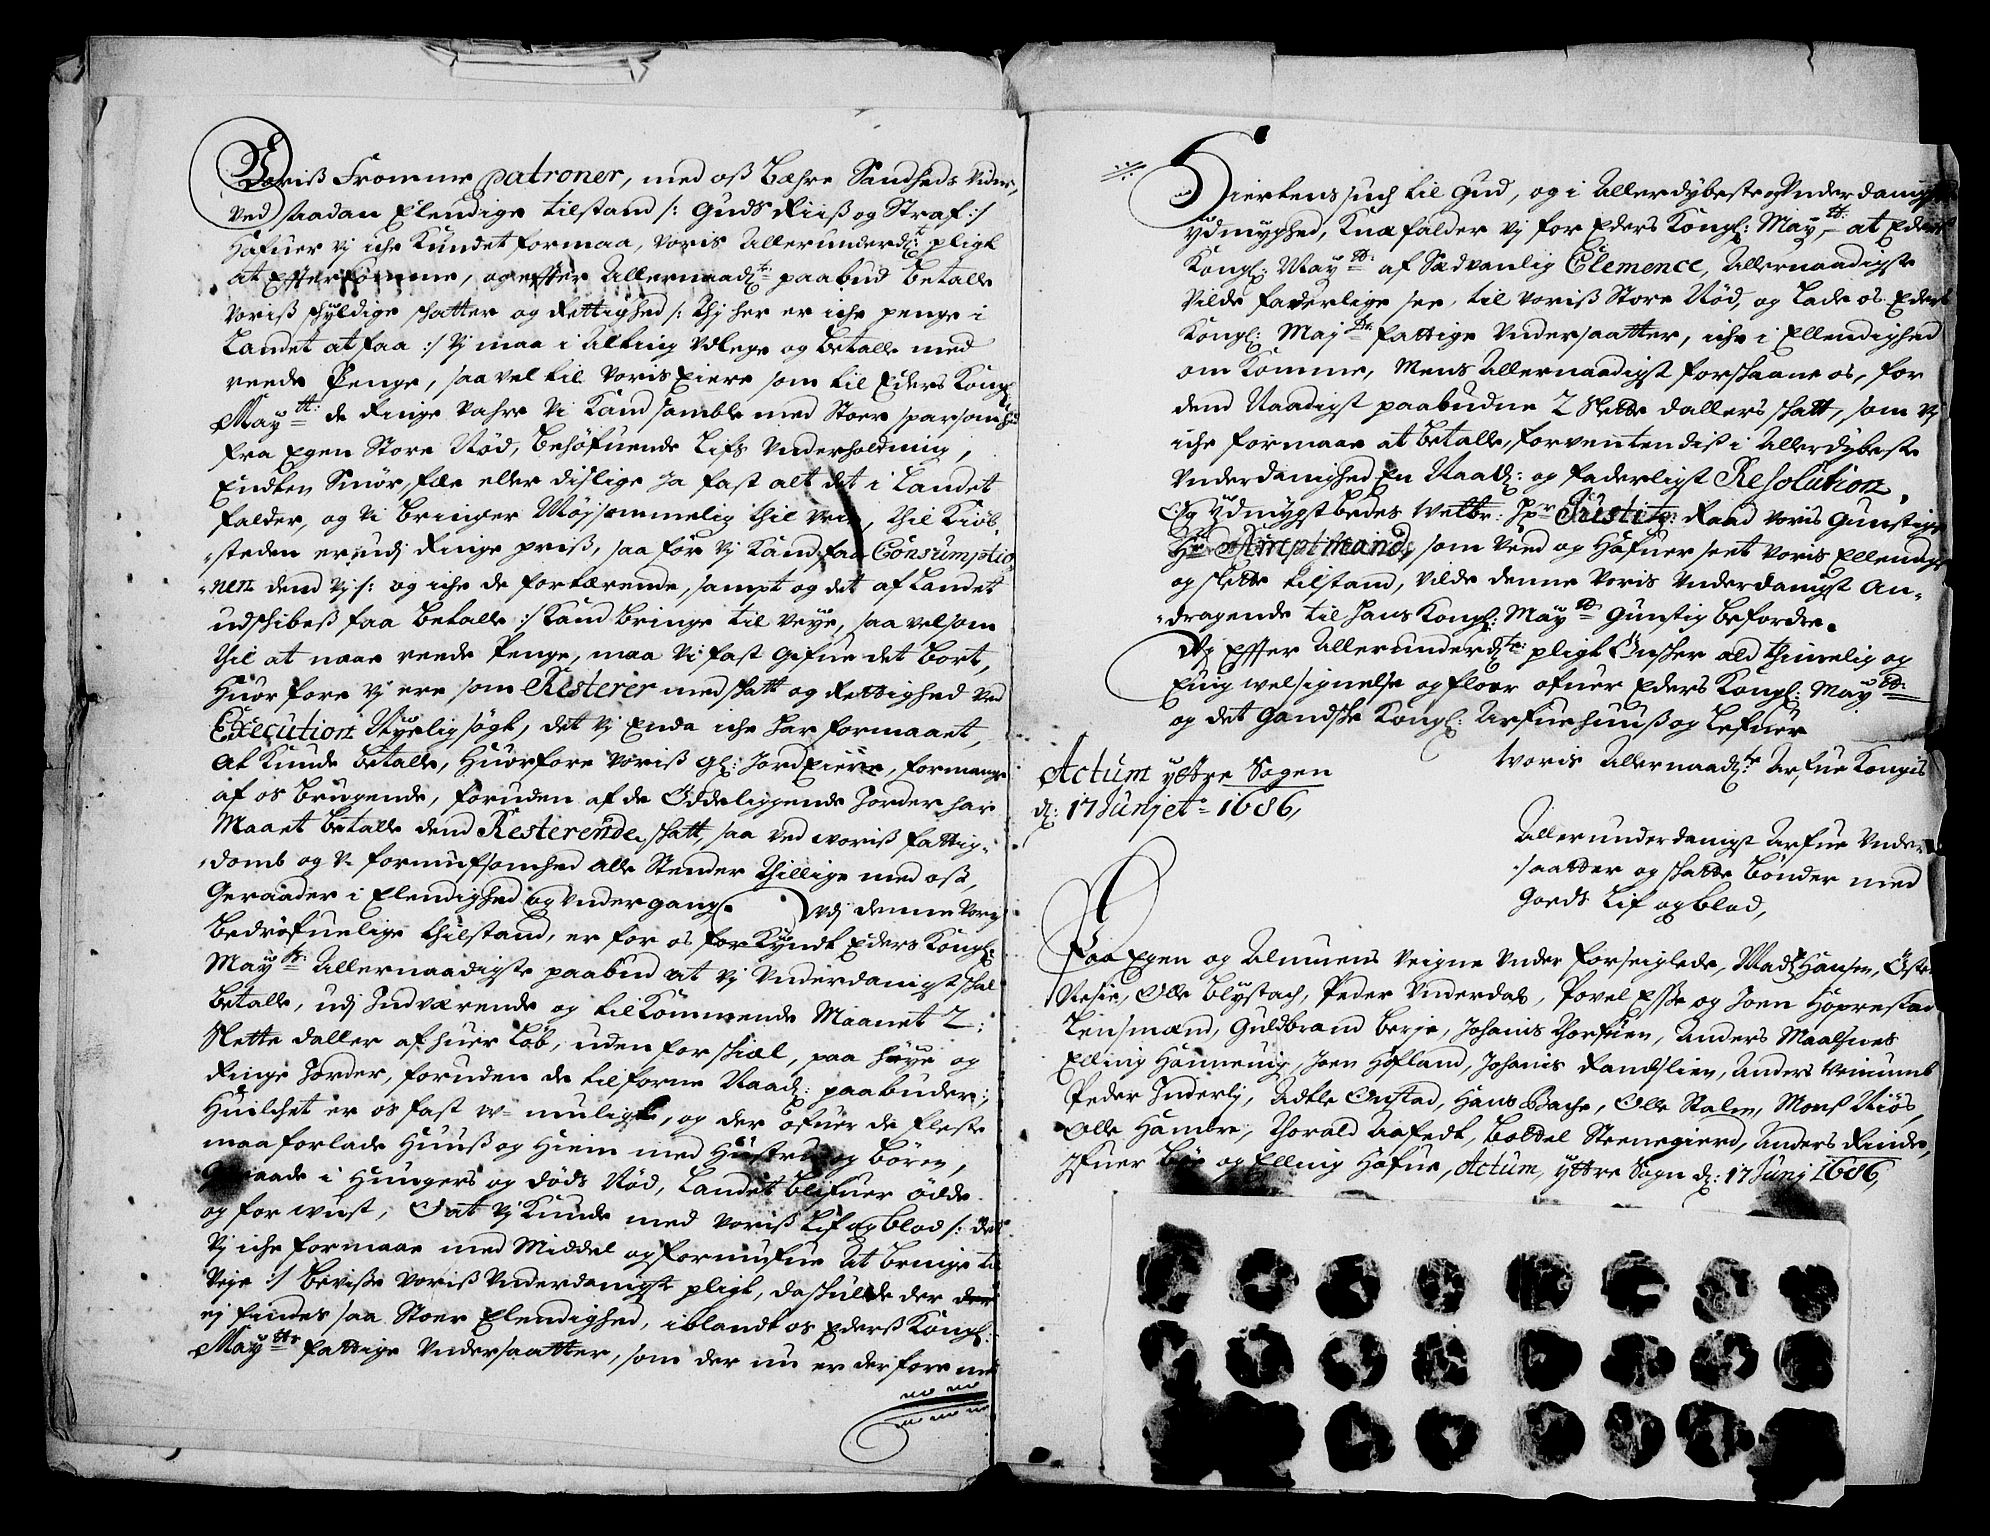 Voriß Fromme Patroner, med oß bæhre Sandheds vider,
ved saadan Elendige tilstand /: Guds Riiß og Straf :/
Hafuer vj iche kundet formaa, voris Allerunderd: pligt
at Effterkomme, og effter Allernaad: paabud betalle
voriß schyldige schatter og Rettighed /: thj her er iche penge i
Landet at faa :/ vj maa i Alting vdlege og betalle med
reede Penge, saa vel til voris Eiere som til Eders Kongl:
Maytt: de Ringe vahre vi kand samble med Stoer sparsomhed
fra Egen Store Nød, behøfuende Lifs vnderholdning,
Endten Smør, fæe eller dislige Ja fast alt det i Landet
falder, og vi bringer Møysommelig thil , thil Kiøb-
steden er udj Ringe priß, saa før vj kand faa Consumptio-
nen dend vj /: og iche de fortærende, sampt og det af Landet
udschibeß faa betalle :/ kand bringe til veye, saa velsom
thil at naae reede Penge, maa vi fast Gifue det bort,
Huorfore vj ere som Resterer med schatt og Rettighed ved
Execution Nyelig søgt, det vj Enda iche har formaaet,
at kunde betalle, Huorfore voriß Gl: Jord Eiere, formange
af os brugende, foruden af de Øddeliggende Jorder har
Maaet betalle dend Resterende schatt, saa ved woriß fattig-
domb og v formufsomhed alle Stender thillige med oß,
Geraader i Elendighed og vndergang. vdj denne voriß
bedrøfuelige thilstand, er for os forkyndt Eders Kongl:
Maytt: Allernaadigste paabud at vj vnderdanigst schal
betalle, udj Indværende og tilkommende Maanet 2:
Slette daller af huer Løb, uden forschiæl, paa høye og
Ringe Jorder, foruden de tilforne Naad: paabuder;
Huilchet er os fast w= muligt, og der ofuer de fleste
maa forlade Huuß og Hiem med Hustru og Børen,
Geraade i Hungers og døds Nød, Landet blifuer ødde
og forwust, O at vj kunde med voriß Lif og blod /: det
vj iche formaae med Middel og formufue at bringe til
veje :/ beviße voriß vnderdanigst pligt, da schulde der
ej findes saa Stoer Elendighed, iblandt os Ederß Kongl:
Maytts fattige vndersaatter, som der nu er derfore med
Hiertens such til Gud, og i Allerdybeste vnderdanigst
ydmyghed, knæfalder vj for Eders Kongl: Maytt: at Eders
Kongl: Maytt: af Sædvanlig Clemence, Allernaadigste
vilde faderlige see til voriß Store Nød, og lade os Eders
Kongl: Maytts fattige vndersaatter, iche i Ellendighed
omkomme, Mens Allernaadigst forschaane os, for
dend Naadigst paabudne 2 Slette dallers schatt, som vj
iche formaae at betalle, forventendiß i Allerdybeste
vnderdanighed En Naad: og faderligst Resolution,
Og ydmygst bedes welbr: Hr Justitz: Raad voris Gunstige
Hr Amptmand, som veed og Hafuer seet voris Ellendige
og slette tilstand, vilde denne voris vnderdanigst An-
dragende til Hans Kongl: Maytt: Gunstig befordre.
Vj Effter Allerunderd: pligt Ønscher ald thimelig og
Evig welsignelse og floor ofuer Eders Kongl: Maytt:
og det Gandsche Kongl: Arfuehuuß og Lefuer
Woris Allernaad: Arfue Kongis
Actum yttre Sogen
d: 17 Junj et= 1686,
Allerunderdanigst Arfue vnder-
saatter og schatte bønder med
Goeds Lif og blod,
Paa Egen og Almuens veigne vnder forseiglede, Madz Hansen, Øster
Nesie, Olle blystach, Peder vnderdal, Povel Esse og Joen Hoprestad
Lensmænd, Guldbrand berje, Johanis Thorsuen, Anders Maalsnes
Elling Hammenig, Joen Hofland, Johanis Randslien, Anders
Peder Inderlj, Adtle Onstad, Hans Bache, Olle Stalen, Monß Niøs,
Olle Hambre, Thorald Aafedt, Bottel Steenegierd, Anders Rinde,
Ifuer Bøe og Elling Hofue, Actum yttre Sogn d: 17 Junj 1686,